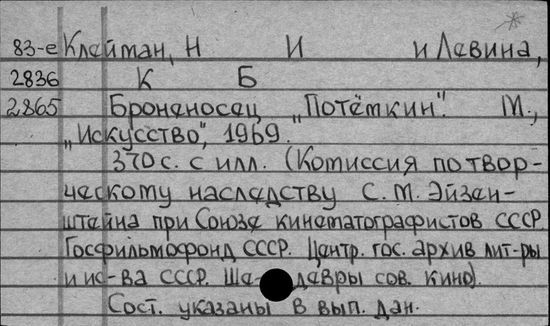 83-е Клейман, Н И и Левина,
2836 К Б
2865 Броненосец „Потёмкин". М.,
„Искусство", 1969.
370 с. с илл. (Комиссия по твор-
ческому наследству С. М. Эйзен-
штейна при Союзе кинематографистов СССР.
Госфильмофонд СССР. Центр. гос. архив лит-ры
и ис-ва СССР. Ше девры сов. кино).
Сост. указаны в вып. дан.